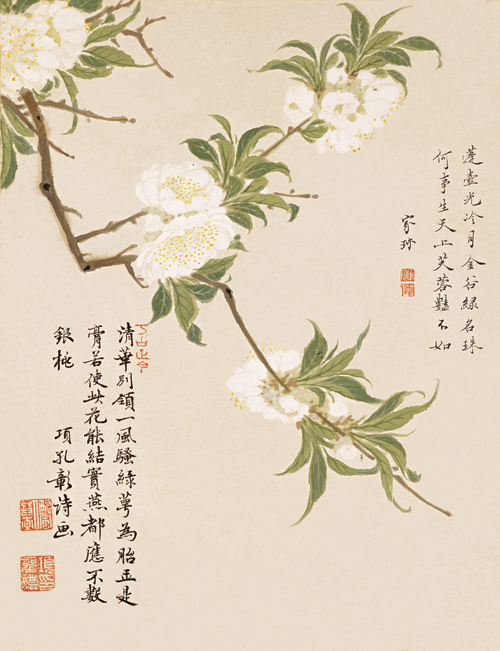 蓬壺光冷月金谷綠名珠
何事生天上芙蓉豔不如
家珍
清華別領一風騷綠萼為胎玉是
膏若使此花能結實燕都應不數
銀桃
項孔彰詩画